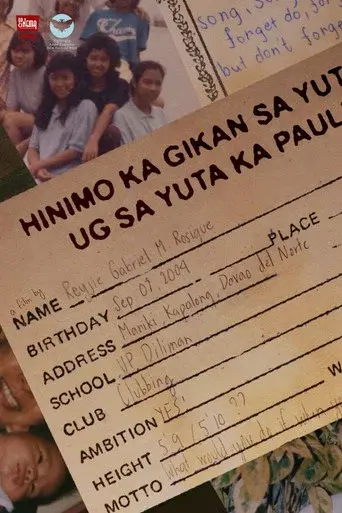 song, so
forget do, fo
forget
but don't forg
HINIMO KA GIKAN SA YUTA
UG SA YUTA KA PAUL
a film by
NAME Reyjie Gabriel M. Rosique
BIRTHDAY Sep 07, 2004
PLACE
ADDRESS Maniki, Kapalong, Davao del Norte
SCHOOL UP Diliman
CLUB Clubbing
AMBITION YES!
HEIGHT 5'9 / 5'10 ??
W
MOTTO What would you do if when